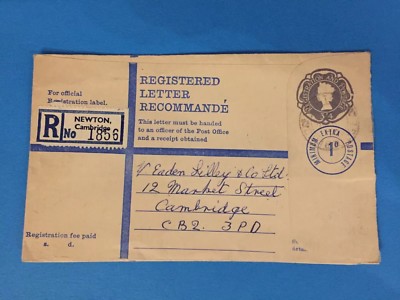 REGISTERED
LETTER
RECOMMANDÉ
This letter must be handed
to an officer of the Post Office
and a receipt obtained
For official
Registration label.
R No
NEWTON,
Cambridge
1856
MINIMUM EXTRA POSTAGE
1D
Eaden Lilley & Co. Ltd.
12 Market Street
Cambridge
CB2. 3PD
Registration fee paid
s. d.